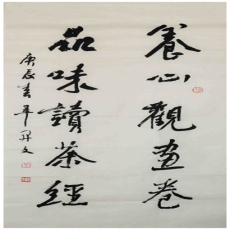 養心觀畫卷
品味讀茶經
庚辰春平開文